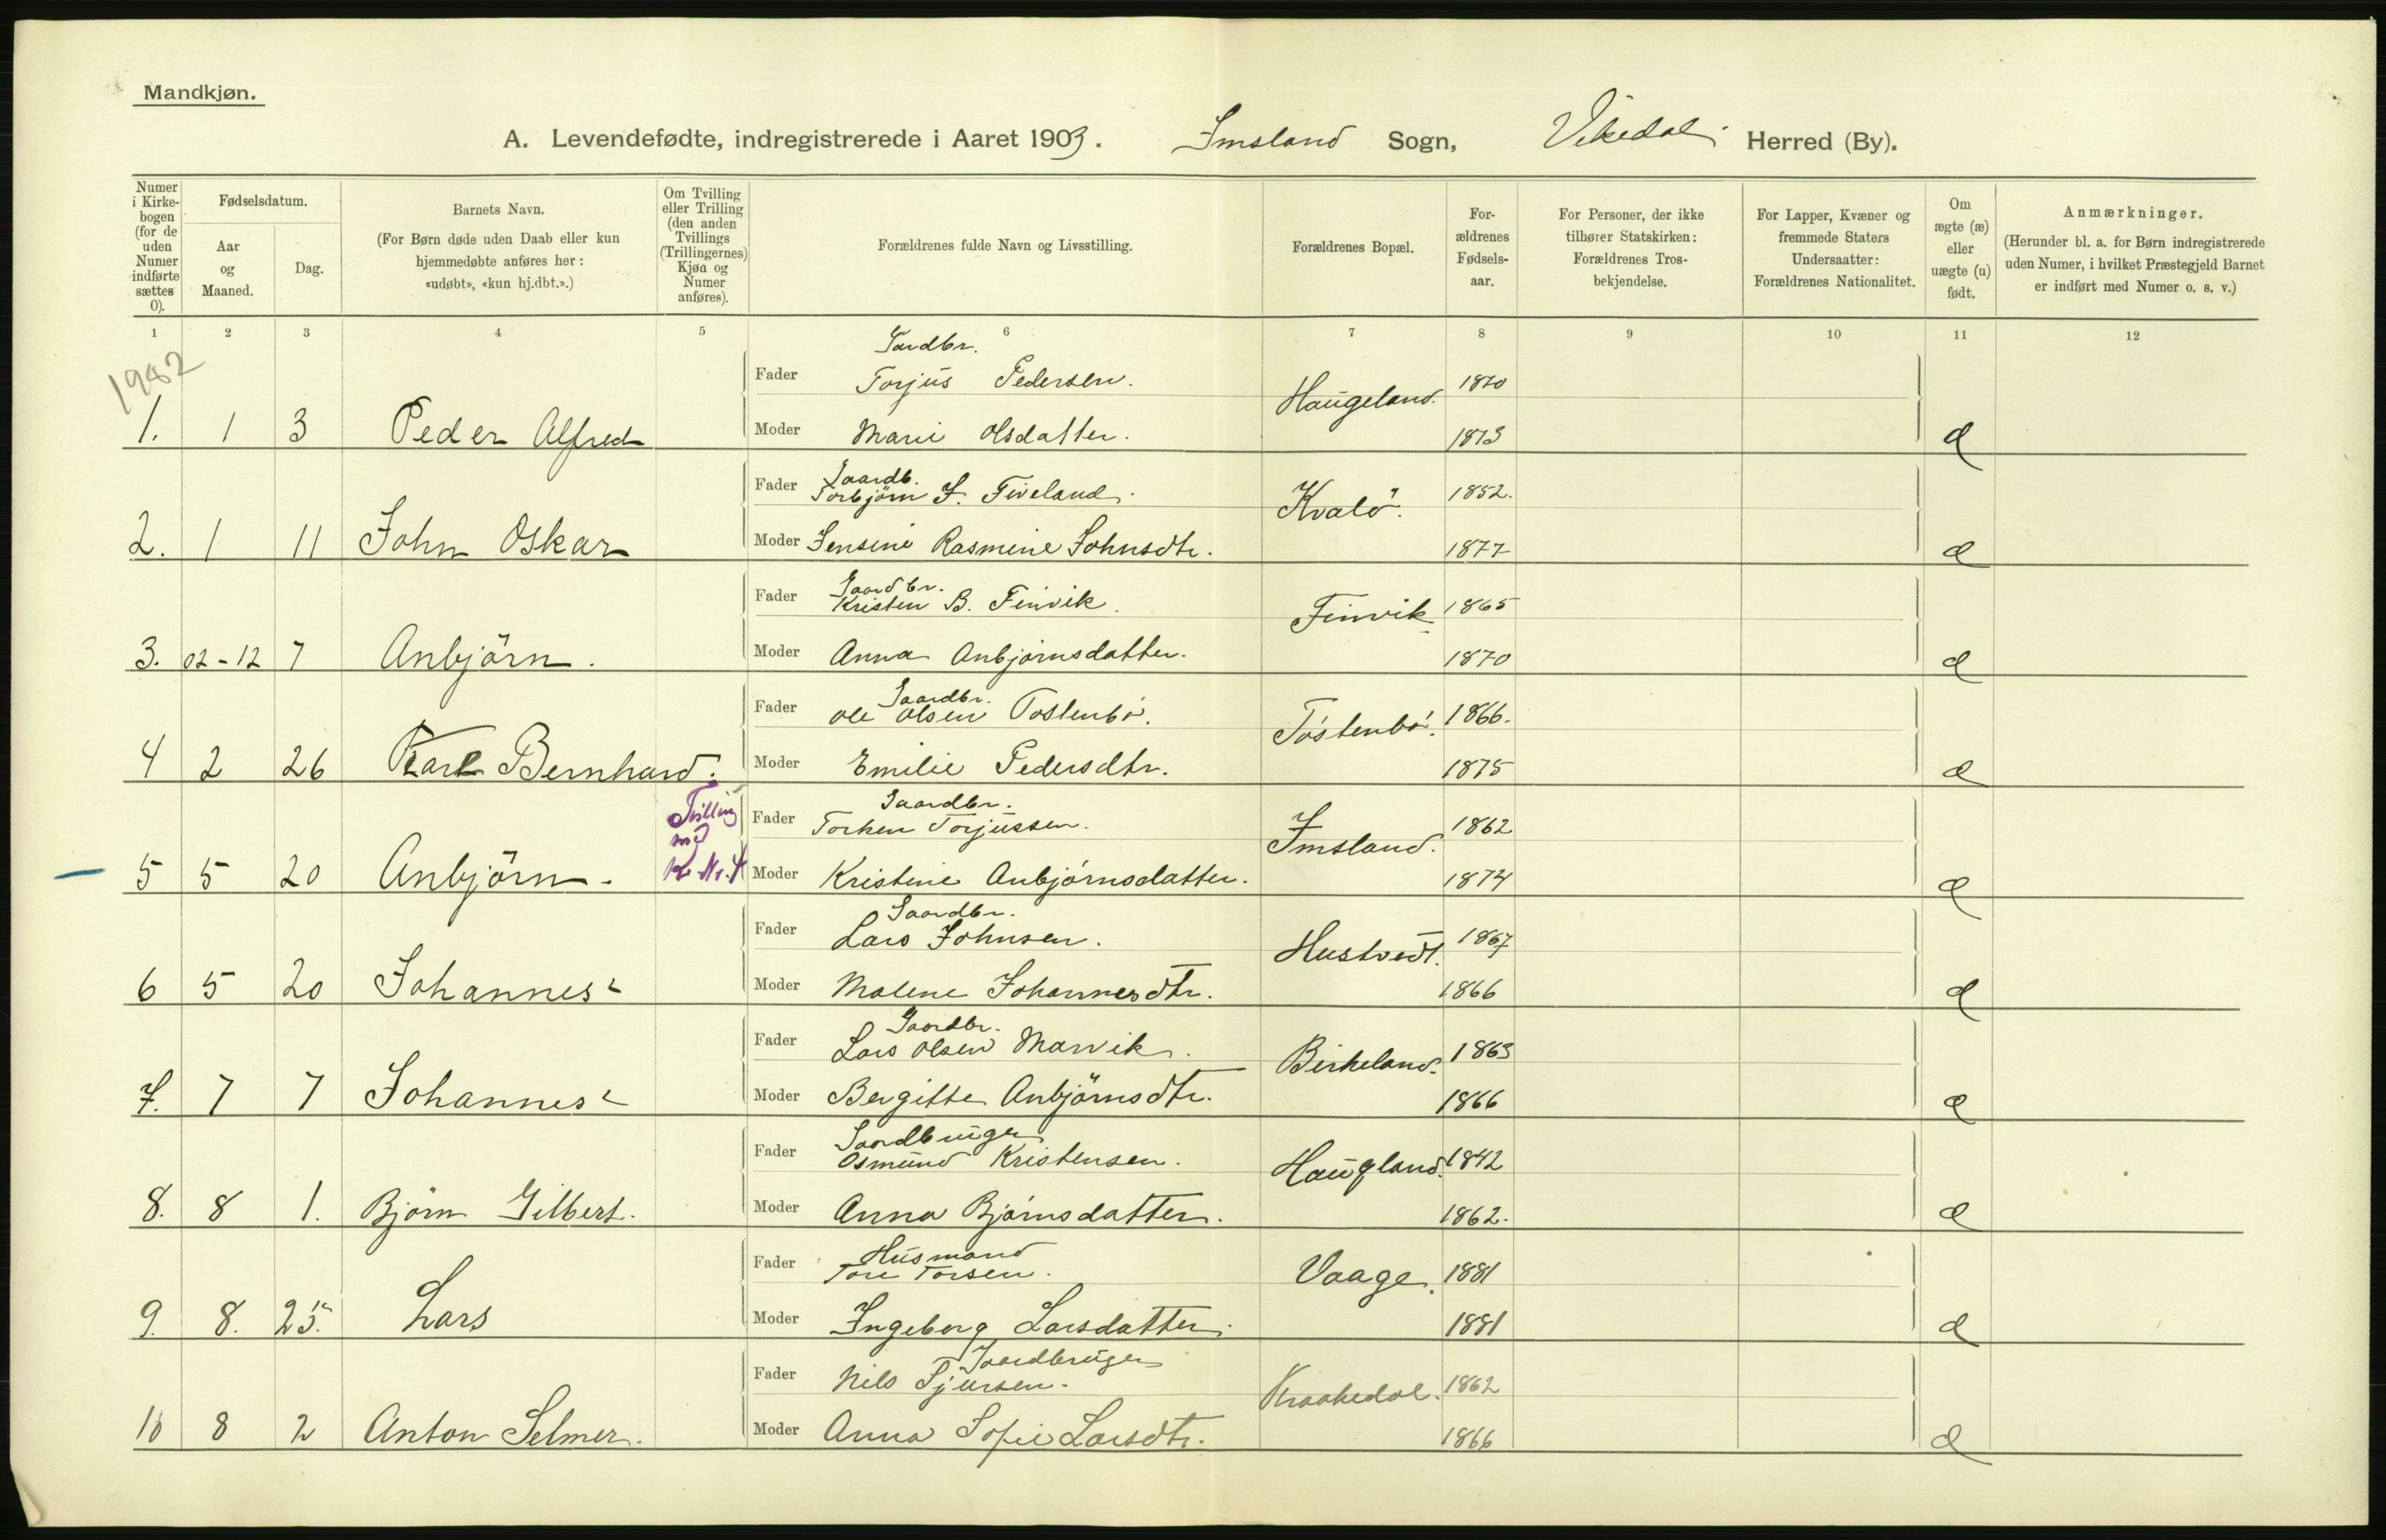 Mandkjøn.
A. Levendefødte, indregistrerede i Aaret 1903. Imsland Sogn, Vikedal Herred (By).
Numer i Kirke- bogen (for de uden Numer indførte sættes 0).
Fødselsdatum.
Aar og Maaned.
Dag.
Barnets Navn.
(For Børn døde uden Daab eller kun hjemmedøbte anføres her: «udøbt», «kun hj.dbt.».)
Om Tvilling eller Trilling (den anden Tvillings (Trillingernes) Kjøn og Numer anføres).
Forældrenes fulde Navn og Livsstilling.
Forældrenes Bopæl.
For- ældrenes Fødsels- aar.
For Personer, der ikke tilhører Statskirken: Forældrenes Tros- bekjendelse.
For Lapper, Kvæner og fremmede Staters Undersaatter: Forældrenes Nationalitet.
Om ægte (æ) eller uægte (u) født.
Anmærkninger.
(Herunder bl. a. for Børn indregistrerede uden Numer, i hvilket Præstegjeld Barnet er indført med Numer o. s. v.)
1 2 3 4 5 6 7 8 9 10 11 12
1982
Gardbr.
Fader Torjus Pedersen. Haugeland. 1870
1. 1 3 Peder Alfred Moder Marie Olsdatter. 1873 æ
Gaardb.
Fader Torbjørn J. Tveland. Kvalö. 1852.
2. 1 11 John Oskar Moder Jensine Rasmine Johnsdtr. 1877 æ
Gaardbr.
Fader Kristen B. Finvik. Finvik 1865
3. 02-12 7 Anbjörn. Moder Anna Anbjørnsdatter. 1870 æ
Gaardbr.
Fader Ole Olsen Tostenbö. Töstenbö. 1866.
4 2 26 Karl Bernhard. Moder Emilie Pedersdtr. 1875 æ
Gaardbr.
Fader Torken Torjussen. Imsland. 1862
5 5 20 Anbjörn. Tvilling med Kv. Nr. 4 Moder Kristine Anbjörnsdatter. 1874 æ
Gaardbr.
Fader Lars Johnsen. Hustvedt. 1867
6 5 20 Johannes Moder Malene Johannesdtr. 1866 æ
Gaardbr.
Fader Lars Olsen Marvik. Birkeland. 1863
7. 7 7 Johannes Moder Bergitte Anbjörnsdtr. 1866 æ
Gaardbruger
Fader Osmund Kristensen. Haugland. 1842
8. 8 1. Björn Gilbert. Moder Anna Bjørnsdatter. 1862. æ
Husmand
Fader Tore Torsen. Vaage. 1881
9. 8. 25. Lars Moder Ingeborg Larsdatter. 1881 æ
Gaardbruger
Fader Nils Sjursen. Kraakedal. 1862
10 8 2 Anton Selmer. Moder Anna Sofie Larsdtr. 1866 æ